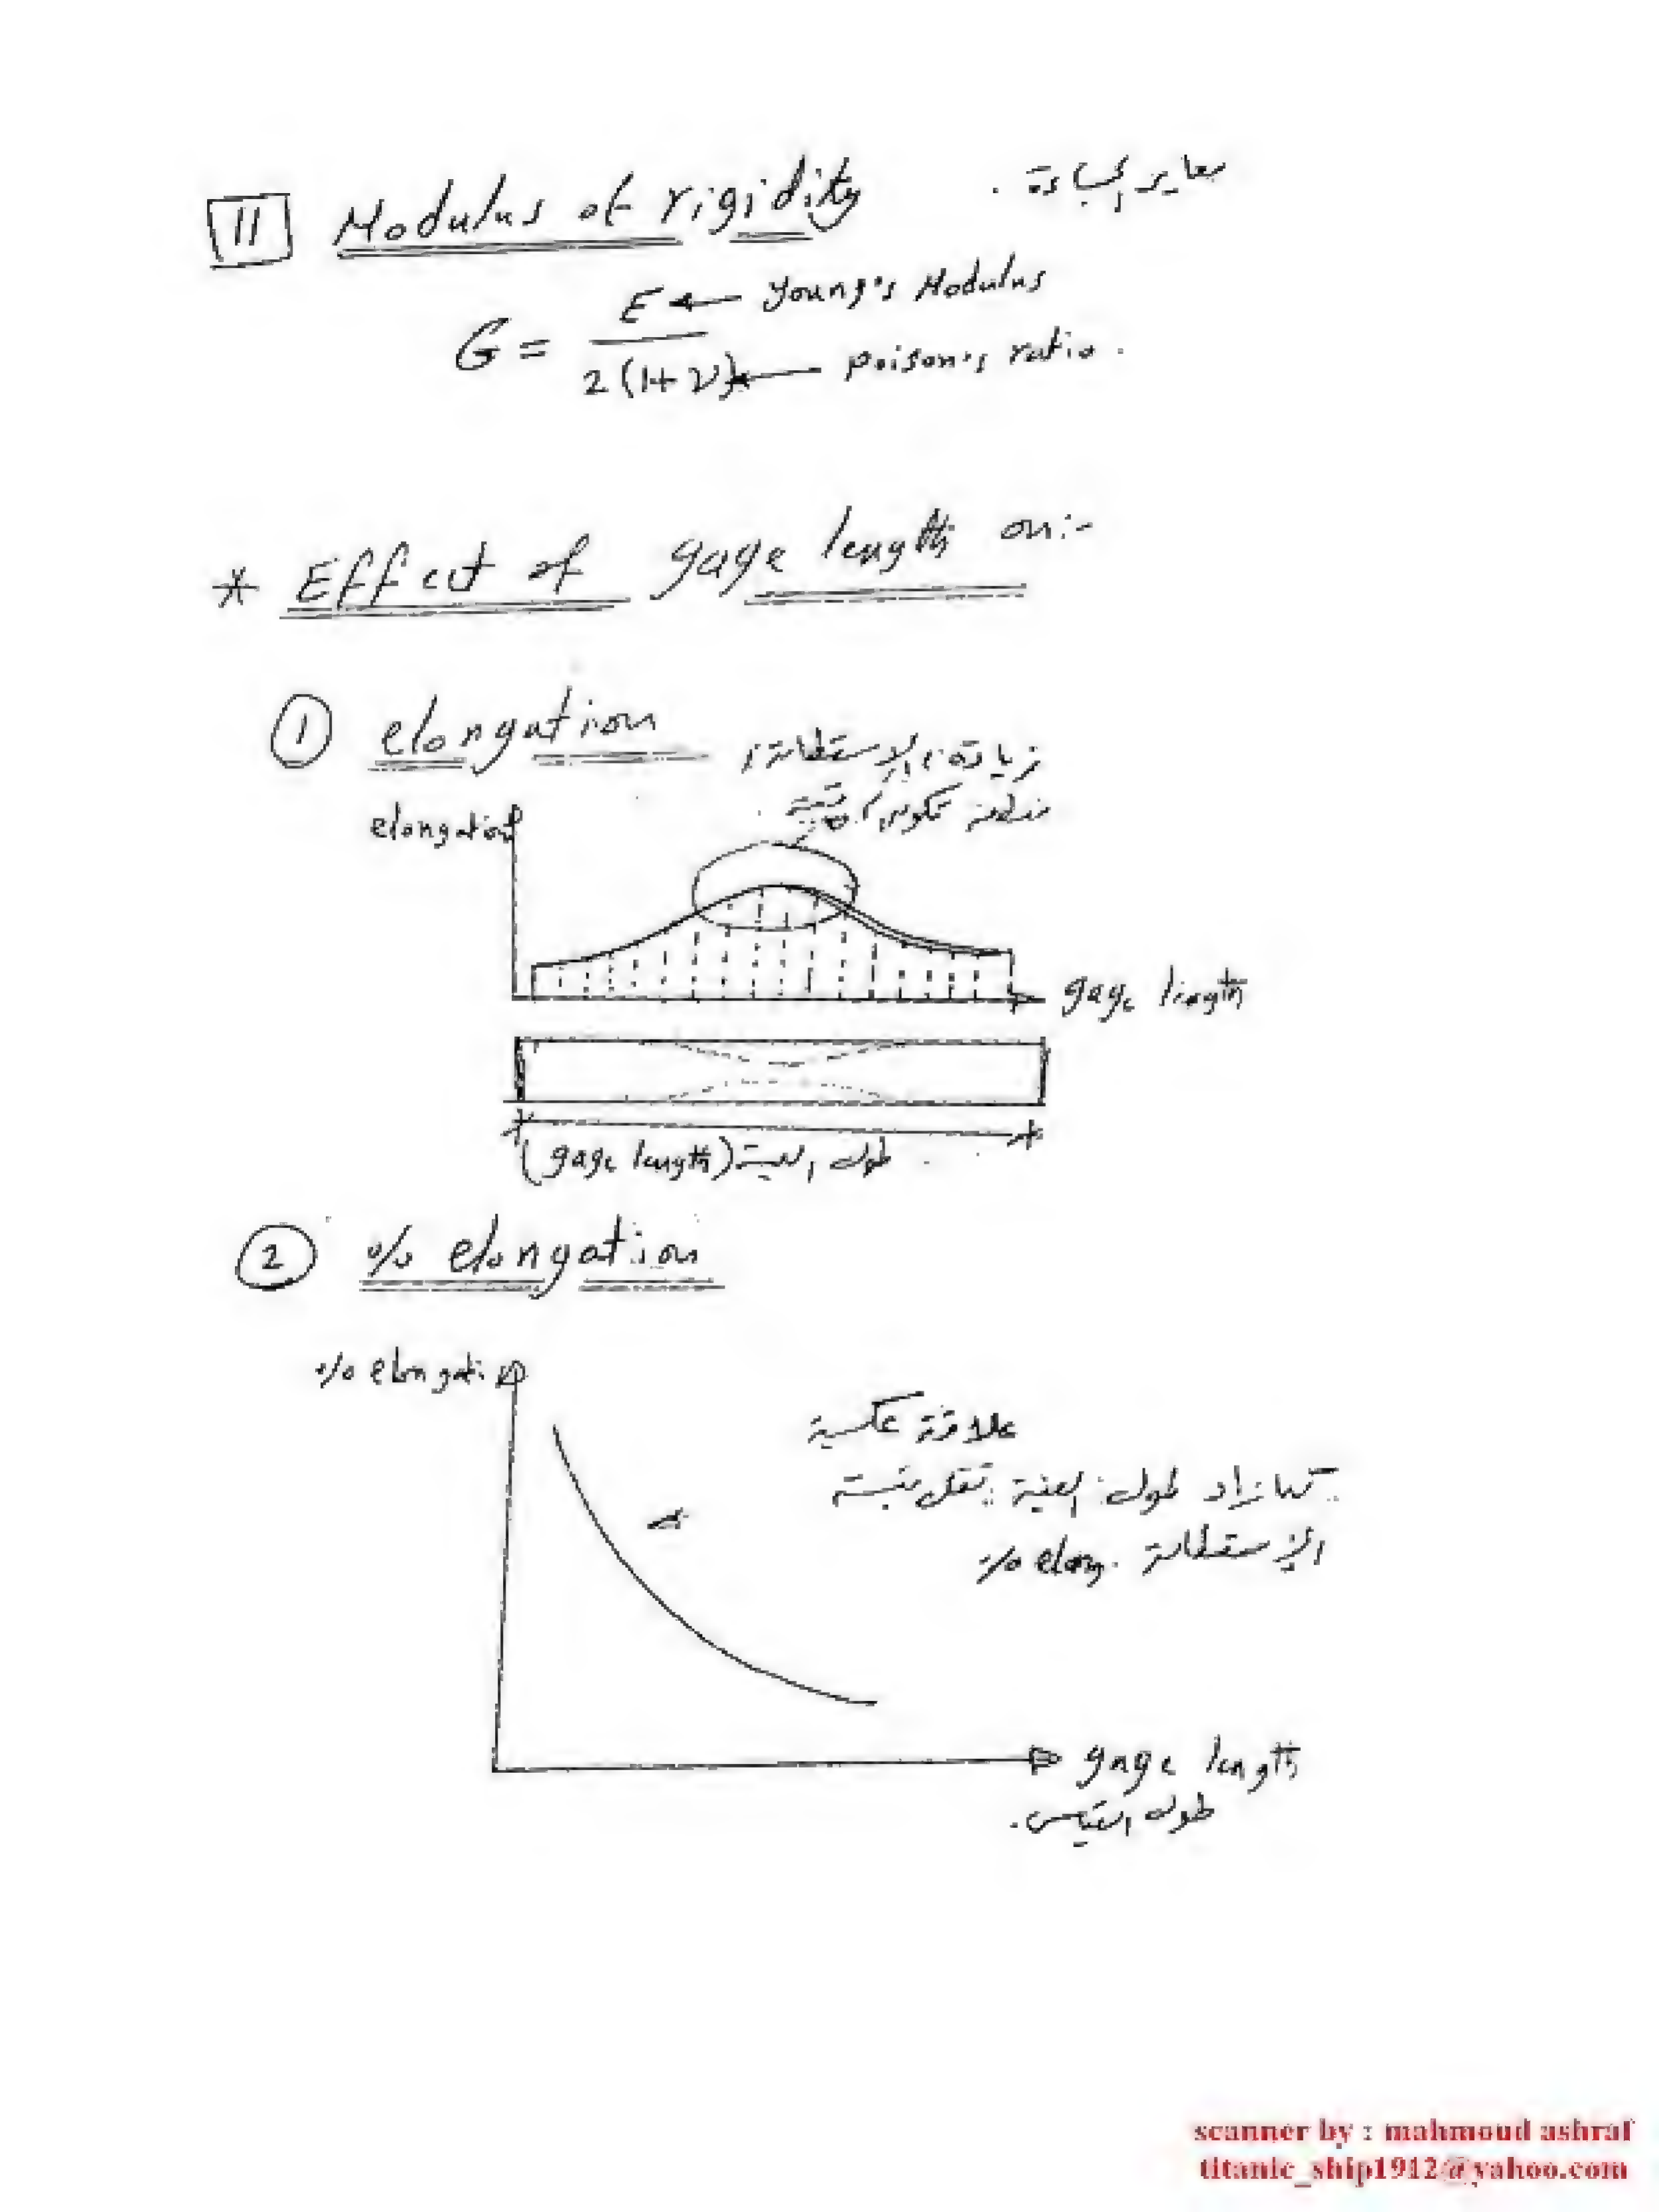 11 Modulus of rigidity معاير الجساءة .
G = E ← Young's Modulus
2(1+ν) ← Poison's ratio .
* Effect of gage length on:-
1 elongation
زيادة الإستطالة
منطقة تكون
elongation
gage length
(gage length) طول العينة
2 % elongation
% elongati
علاقة عكسية
كلما زاد طول العينة تقل نسبة
الإستطالة % elong.
gage length
طول القياس .
scanner by : mahmoud ashraf
titanic_ship1912@yahoo.com